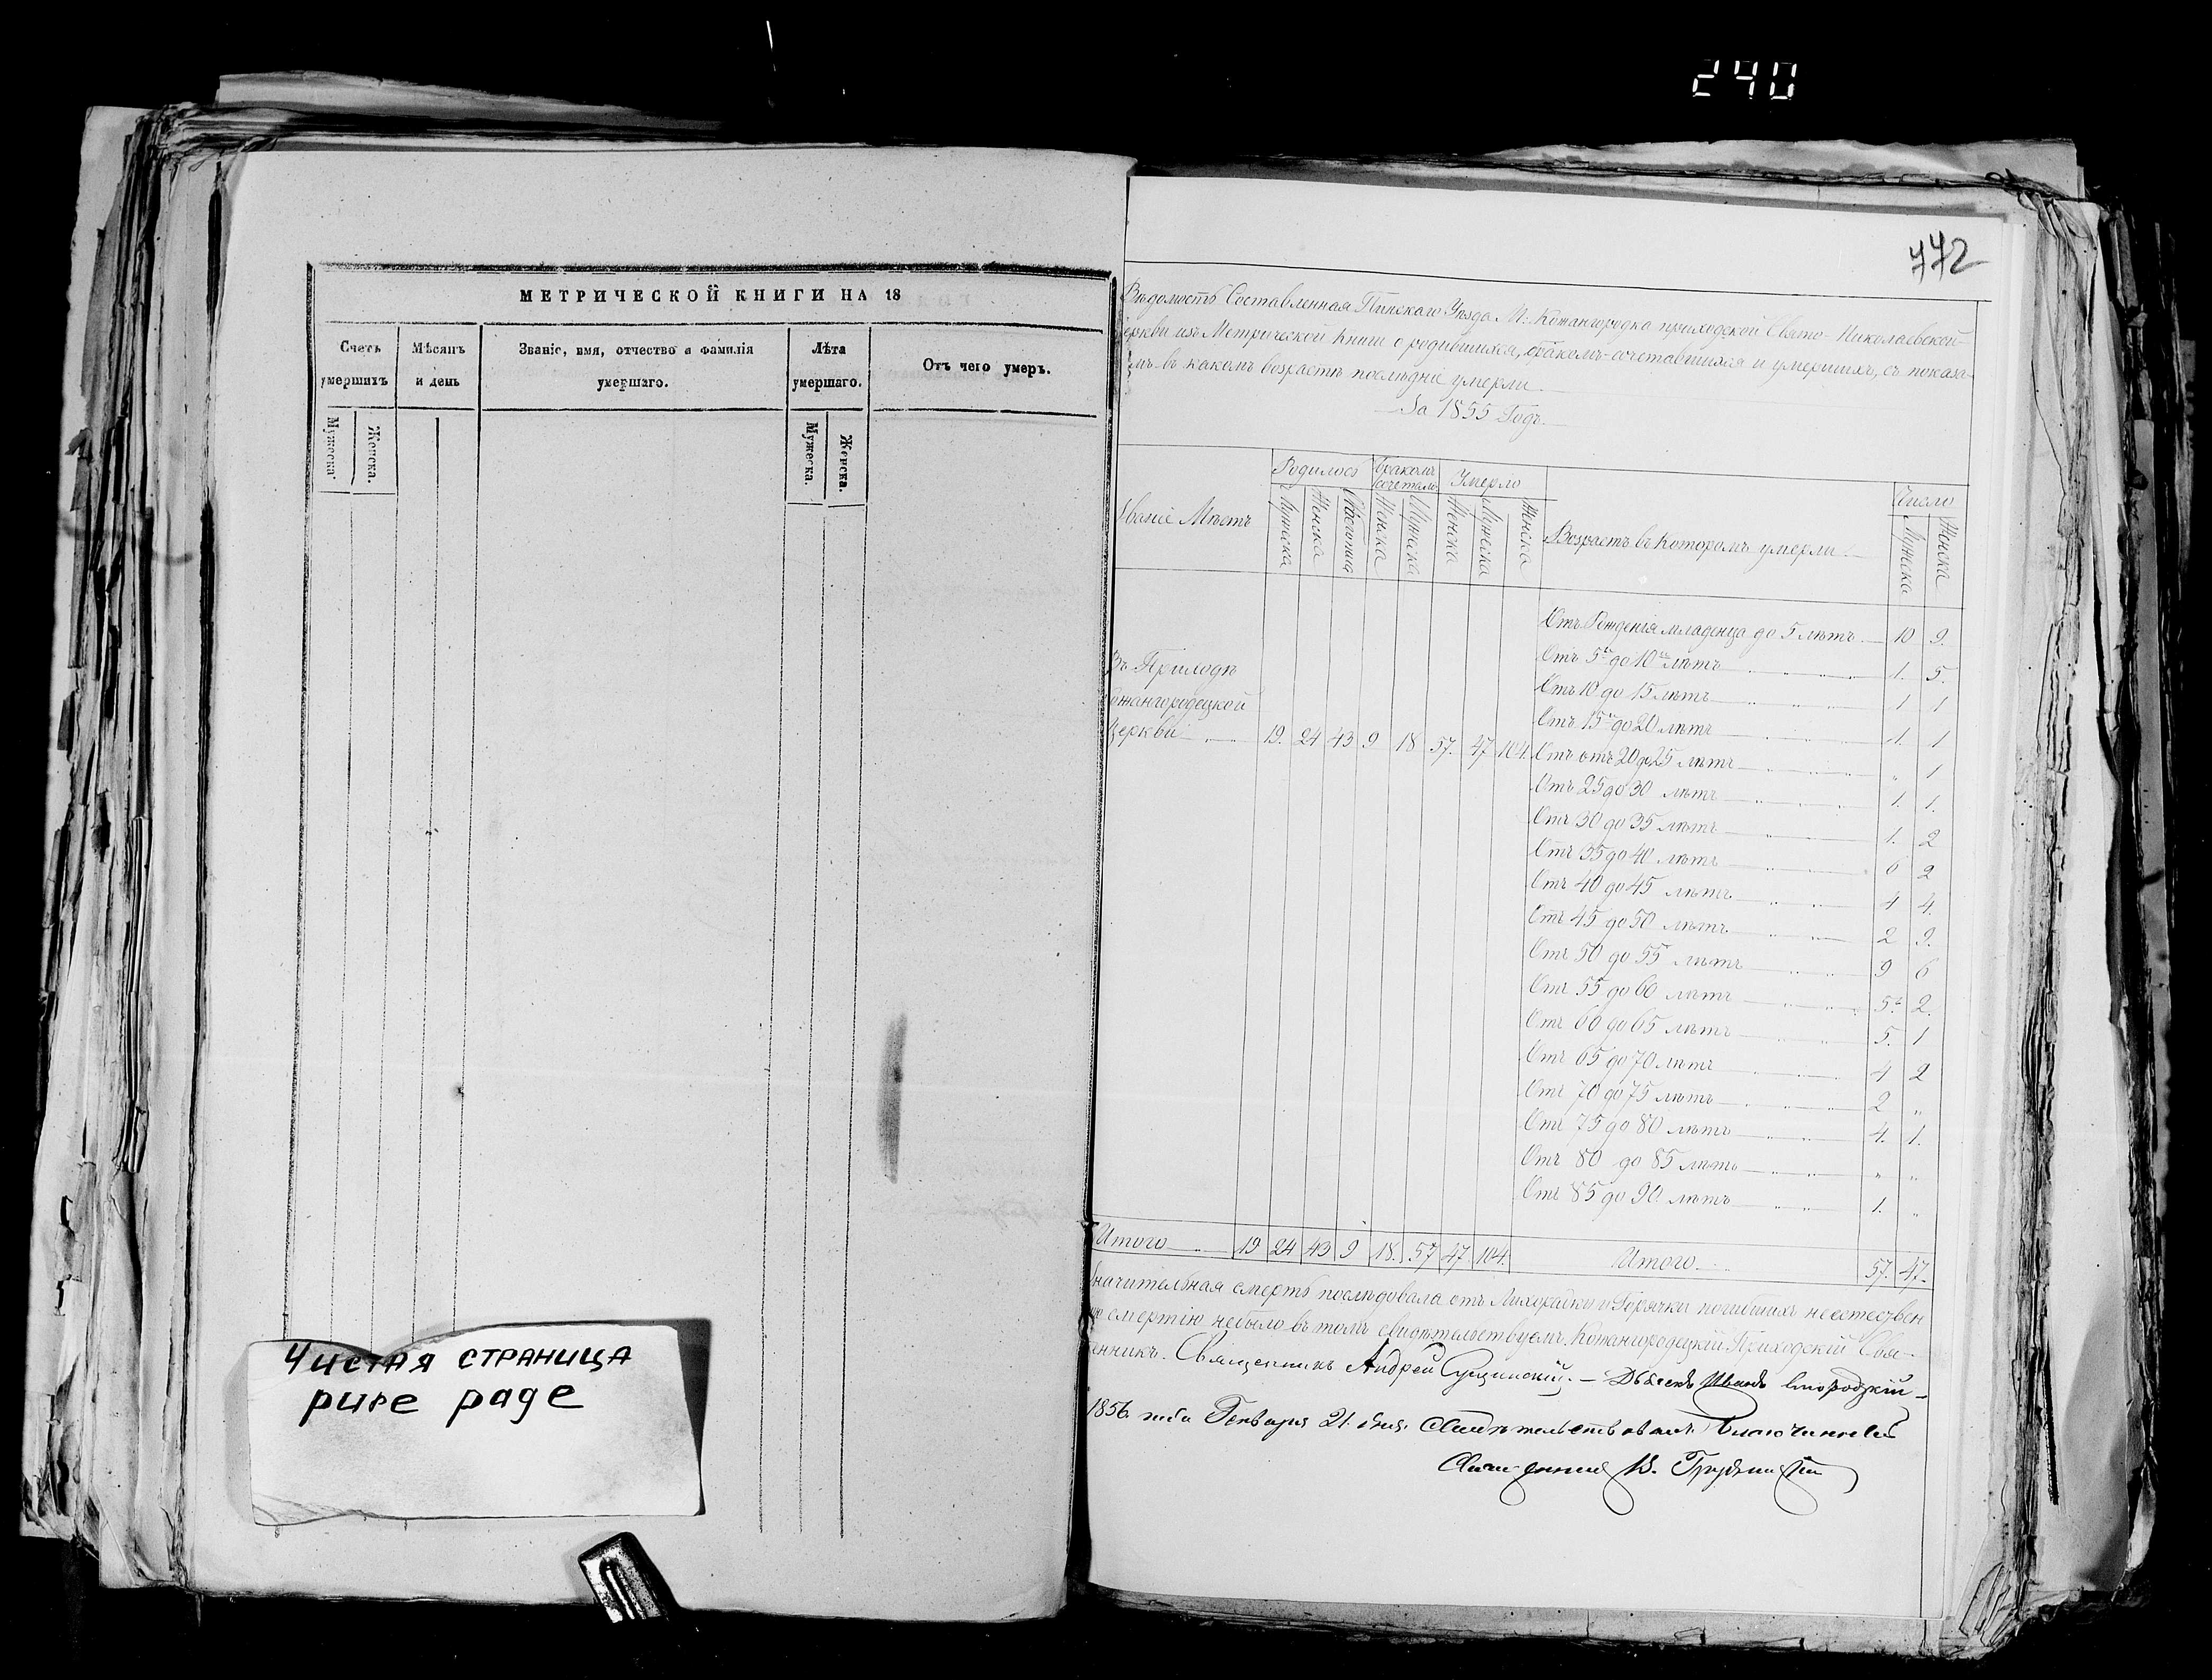 240
МЕТРИЧЕСКОЙ КНИГИ НА 18
Счетъ умершихъ
Мѣсяцъ и день
Званіе, имя, отчество и фамилія умершаго.
Лѣта умершаго.
Отъ чего умеръ.
Мужеска.
Женска.
Мужеска.
Женска.
Чистая страница
pure page
772
Вѣдомость Составленная Пинскаго Уѣзда М: Кожангородка приходской Свято-Николаевской
Церкви изъ Метрической Книги о родившихся, бракомъ-сочетавшихся и умершихъ, съ показа-
въ какомъ возрастѣ послѣдніе умерли.
За 1855 Годъ.
Званіе Мѣстъ
Родилось
Бракомъ сочетало
Умерло
Возрастъ въ Которомъ умерли
Число
Мужеска
Женска
Обоего пола
Женска
Мужеска
Женска
Мужеска
Женска
Мужеска
Женска
Отъ Рожденія младенца до 5 лѣтъ 10 9.
Отъ 5 до 10 лѣтъ 1. 5.
Отъ 10 до 15 лѣтъ 1 1
Отъ 15 до 20 лѣтъ 1. 1
Въ Приходѣ
ожангородецкой
Церкви 19. 24 43 9 18 57. 47 104.
Отъ отъ 20 до 25 лѣтъ „ 1
Отъ 25 до 30 лѣтъ 1. 1.
Отъ 30 до 35 лѣтъ 1. 2
Отъ 35 до 40 лѣтъ 6 2
Отъ 40 до 45 лѣтъ 4 4.
Отъ 45 до 50 лѣтъ 2 9.
Отъ 50 до 55 лѣтъ 9 6
Отъ 55 до 60 лѣтъ 5. 2.
Отъ 60 до 65 лѣтъ 5. 1
Отъ 65 до 70 лѣтъ 4 2
Отъ 70 до 75 лѣтъ 2 „
Отъ 75 до 80 лѣтъ 4. 1.
Отъ 80 до 85 лѣтъ „ „
Отъ 85 до 90 лѣтъ 1. „
Итого 19 24 43 9 18. 57 47 104. Итого 57. 47.
значительная смерть послѣдовала отъ Лихорадки и Горячки погибшихъ неестествен
ою смертію небыло въ томъ свидѣтельствуемъ. Кожангородецкій Приходскій Свя-
щенникъ. Священникъ Андрей Сущинскій. – Дьячекъ Иванъ
1856 года Генваря 21. дня. Свидѣтельствовалъ Благочинный
Священникъ